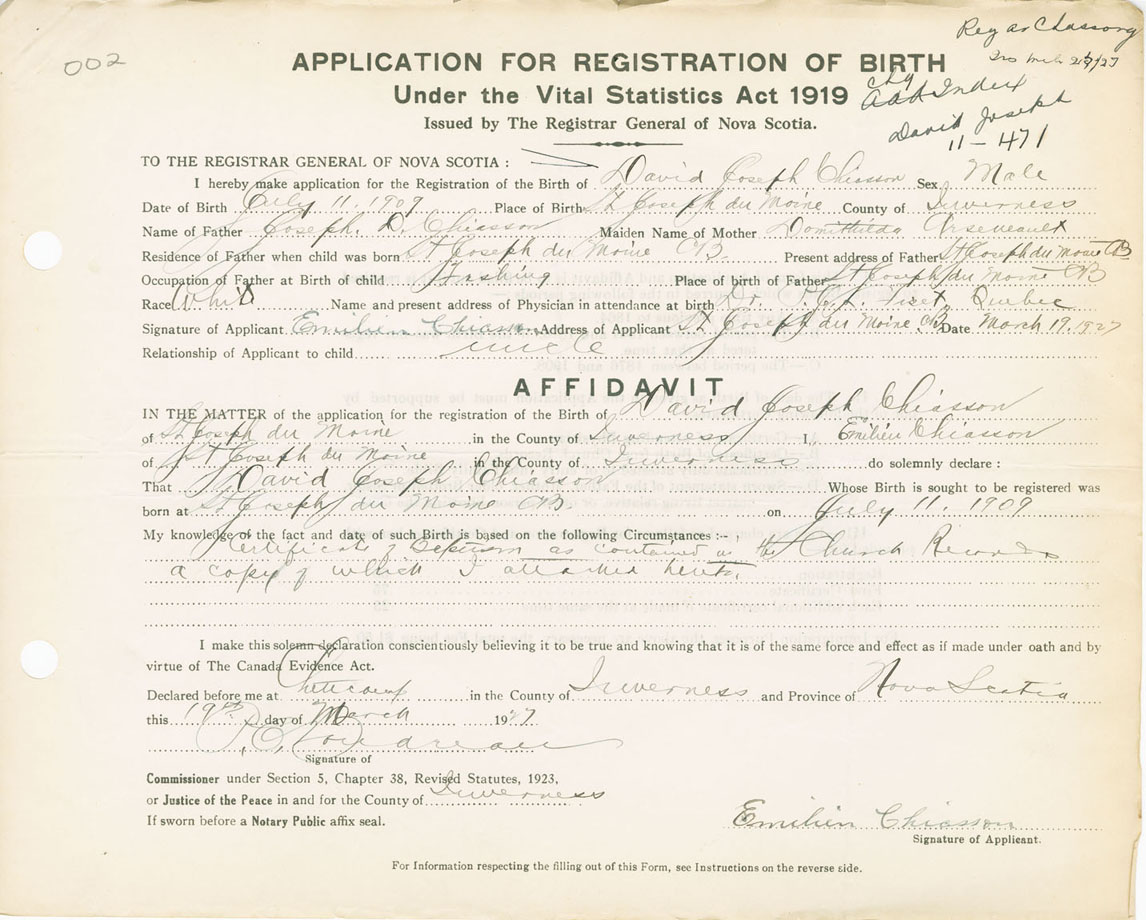 002
Reg as Chassong
APPLICATION FOR REGISTRATION OF BIRTH
Under the Vital Statistics Act 1919
Issued by The Registrar General of Nova Scotia.
Add Index
David Joseph
11-471
TO THE REGISTRAR GENERAL OF NOVA SCOTIA :
I hereby make application for the Registration of the Birth of David Joseph Chiasson Sex Male
Date of Birth July 11, 1909 Place of Birth St Joseph du Moine County of Inverness
Name of Father Joseph. D. Chiasson Maiden Name of Mother Domithilda Arseneault
Residence of Father when child was born St Joseph du Moine CB. Present address of Father St Joseph du Moine CB
Occupation of Father at Birth of child Fishing Place of birth of Father St Joseph du Moine CB
Race White Name and present address of Physician in attendance at birth Dr. Fiset, Quebec
Signature of Applicant Emilien Chiasson Address of Applicant St Joseph du Moine CB Date March 19, 1927
Relationship of Applicant to child uncle
AFFIDAVIT
IN THE MATTER of the application for the registration of the Birth of David Joseph Chiasson
of St Joseph du Moine in the County of Inverness I, Emilien Chiasson
of St Joseph du Moine in the County of Inverness do solemnly declare :
That David Joseph Chiasson Whose Birth is sought to be registered was
born at St Joseph du Moine CB. on July 11, 1909
My knowledge of the fact and date of such Birth is based on the following Circumstances :--
Certificate of Baptism as contained in the Church Records
a copy of which I attached hereto.
I make this solemn declaration conscientiously believing it to be true and knowing that it is of the same force and effect as if made under oath and by
virtue of The Canada Evidence Act.
Declared before me at Cheticamp in the County of Inverness and Province of Nova Scotia
this 19th day of March 1927
Boudreau
Signature of
Commissioner under Section 5, Chapter 38, Revised Statutes, 1923,
or Justice of the Peace in and for the County of Inverness
If sworn before a Notary Public affix seal.
Emilien Chiasson
Signature of Applicant.
For Information respecting the filling out of this Form, see Instructions on the reverse side.